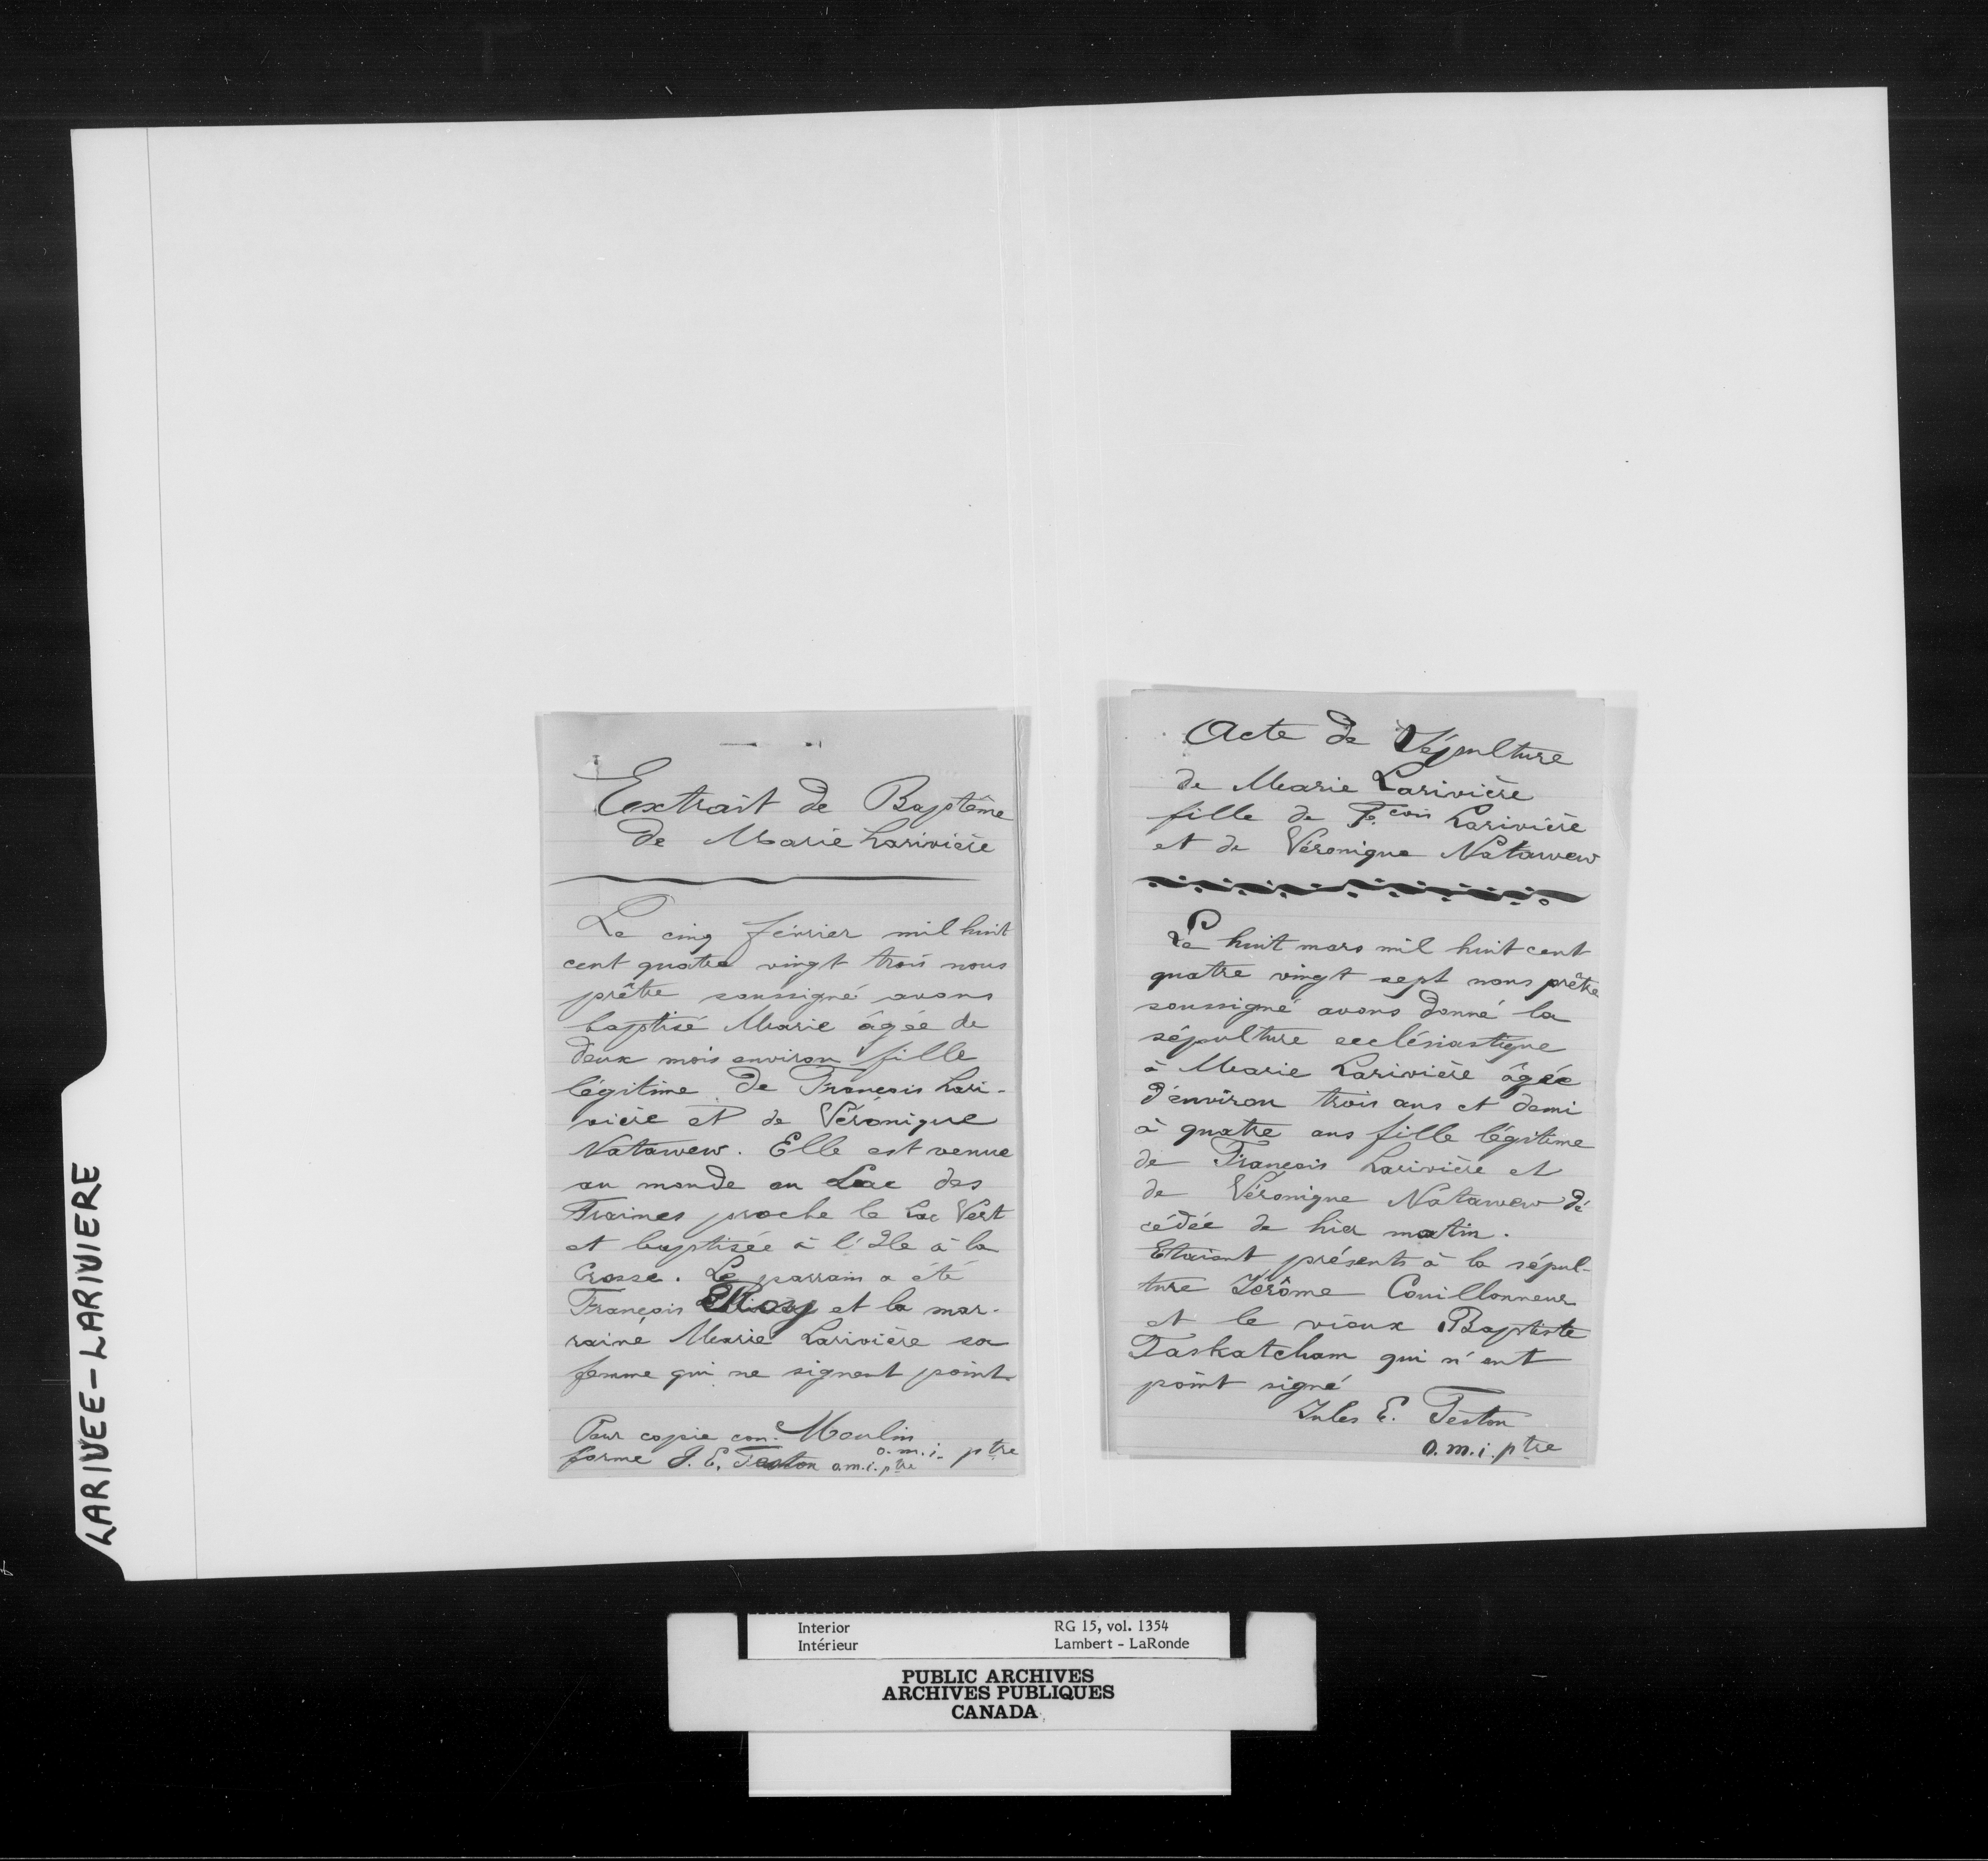 LARIVEE-LARIVIERE
Extrait de Baptême
de Marie Larivière
Le cinq février mil huit
cent quatre vingt trois nous
prêtre soussigné avons
baptisé Marie âgée de
deux mois environ fille
légitime de François Lari-
vière et de Véronique
Natawew. Elle est venue
au monde au Lac des
Traines proche le Lac Vert
et baptisée à l'Ile à la
Crosse. Le parrain a été
François Roy et la mar-
raine Marie Larivière sa
femme qui ne signent point
Pour copie con- Moulin
o.m.i. ptre
forme J. E. Teston o.m.i. ptre
Acte de Sépulture
de Marie Larivière
fille de Fcois Larivière
et de Véronique Natawew
Le huit mars mil huit cent
quatre vingt sept nous prêtre
soussigné avons donné la
sépulture ecclésiastique
à Marie Larivière âgée
d'environ trois ans et demi
à quatre ans fille légitime
de François Larivière et
de Véronique Natawew dé
cédée de hier matin.
Etaient présents à la sépul-
ture Jérôme Couillonneur
et le vieux Baptiste
Taskatcham qui n'ont
point signé
Jules E. Teston
o.m.i. ptre
Interior RG 15, vol. 1354
Intérieur Lambert - LaRonde
PUBLIC ARCHIVES
ARCHIVES PUBLIQUES
CANADA